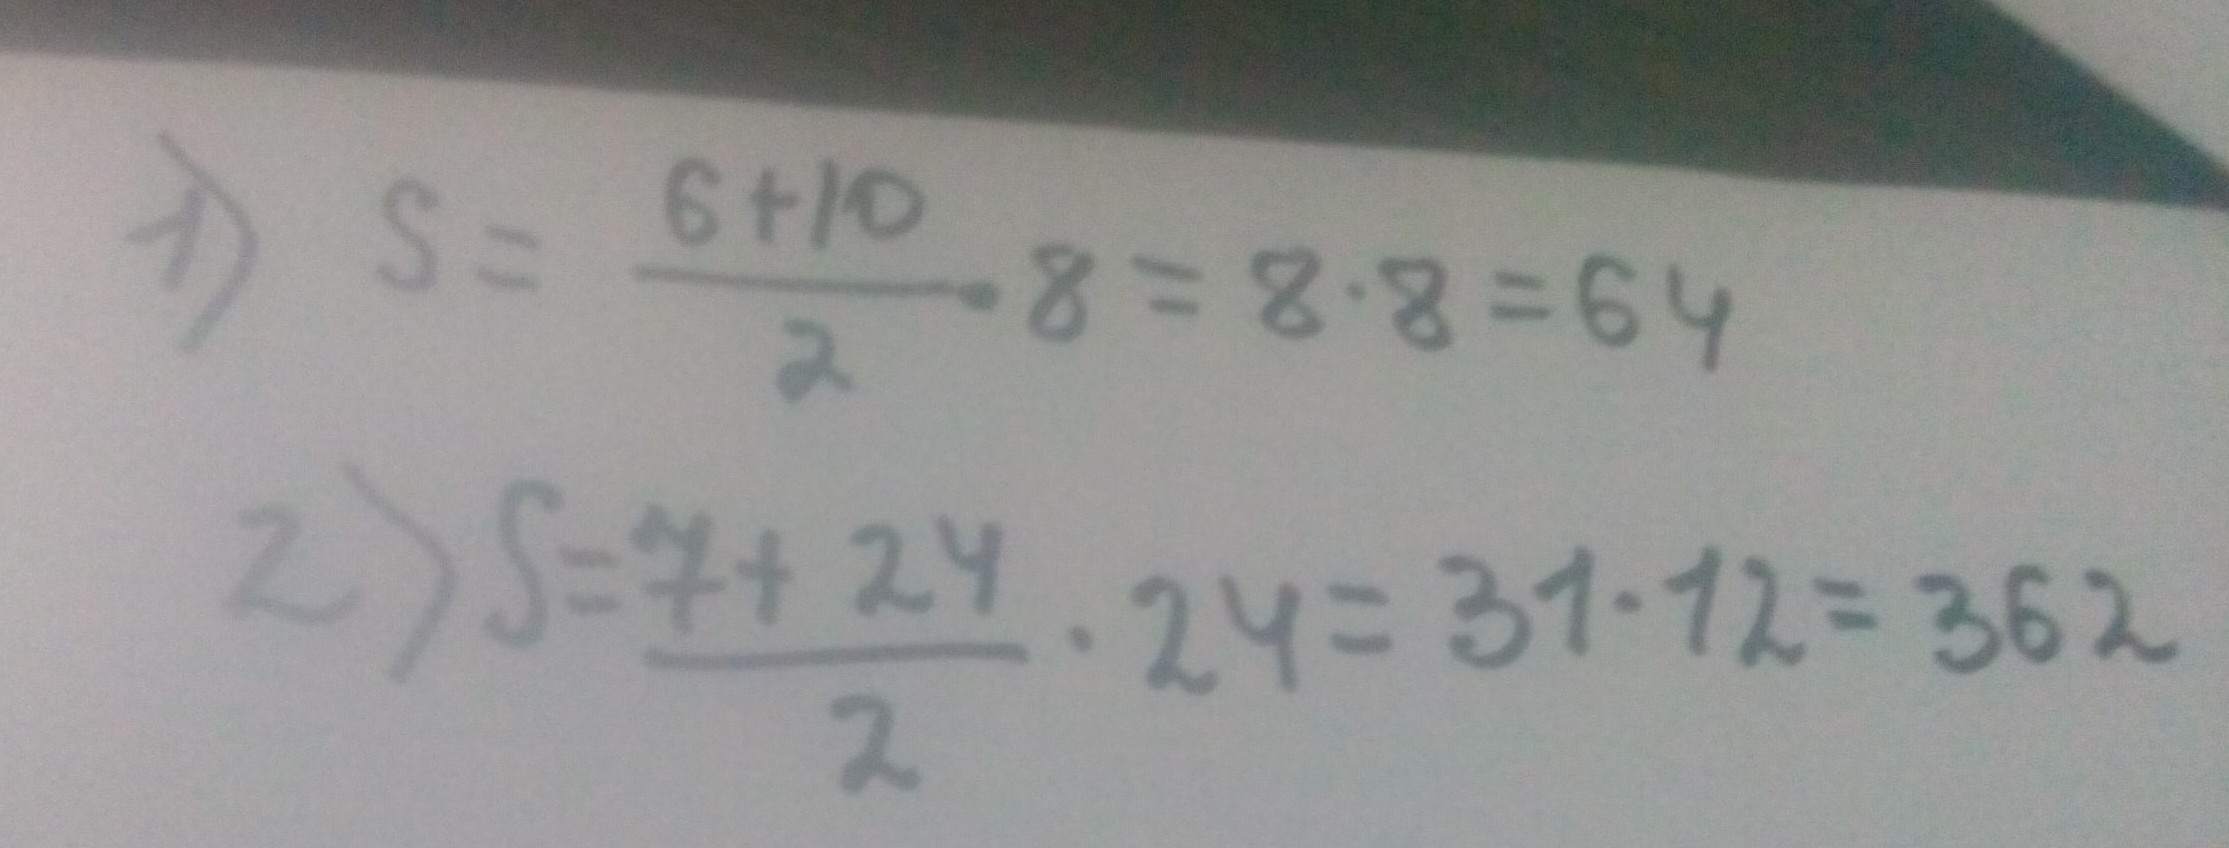 1) S = (6+10)/2 · 8 = 8 · 8 = 64
2) S = (7+24)/2 · 24 = 31 · 12 = 362